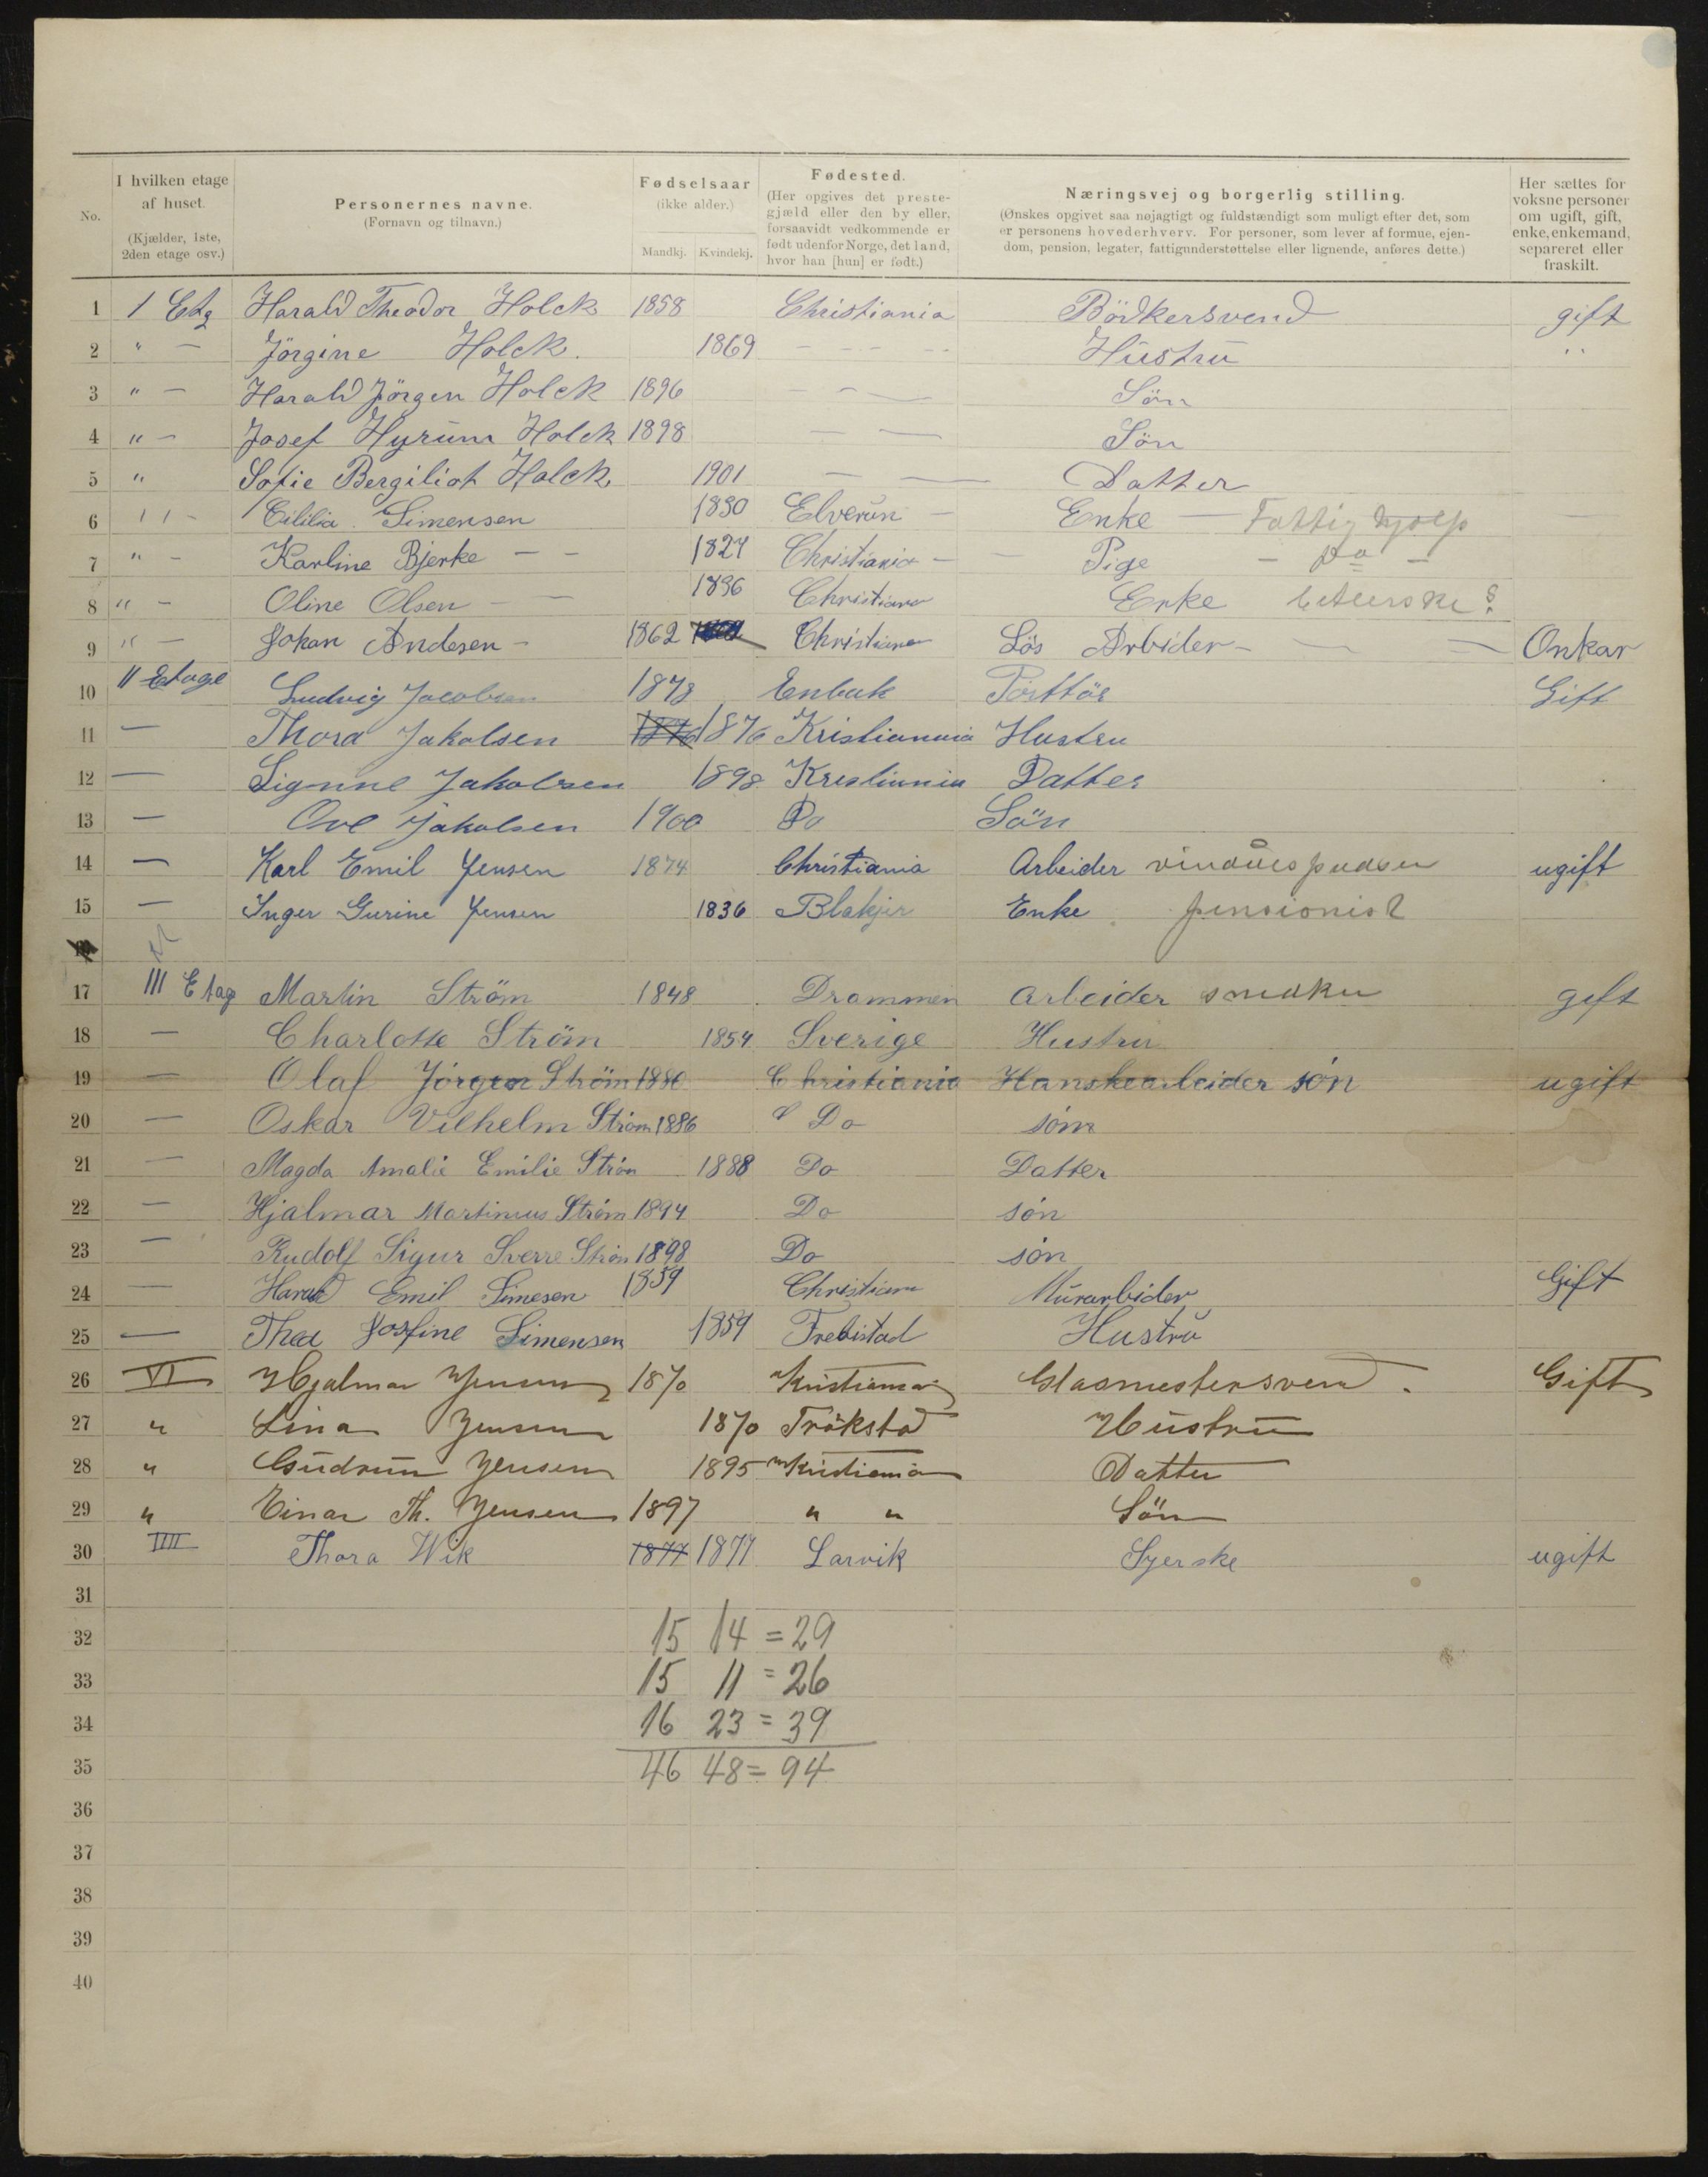 No. I hvilken etage af huset. (Kjælder, 1ste, 2den etage osv.) Personernes navne. (Fornavn og tilnavn.) Fødselsaar (ikke alder.) Mandkj. Kvindekj. Fødested. (Her opgives det prestegjæld eller den by eller, forsaavidt vedkommende er født udenfor Norge, det land, hvor han [hun] er født.) Næringsvej og borgerlig stilling. (Ønskes opgivet saa nøjagtigt og fuldstændigt som muligt efter det, som er personens hovederhverv. For personer, som lever af formue, ejendom, pension, legater, fattigunderstøttelse eller lignende, anføres dette.) Her sættes for voksne personer om ugift, gift, enke, enkemand, separeret eller fraskilt.
1 1 Etg Harald Theodor Holck 1858 Christiania Bödkersvend gift
2 " — Jörgine Holck. 1869 — — — — Hustru "
3 " — Harald Jörgen Holck 1896 — — — Sön
4 " — Josef Hyrum Holck 1898 — — Sön
5 " Sofie Bergiliot Holck 1901 — — Datter
6 " — Cililia Simensen 1830 Elverun — Enke — Fattig hjælp
7 " — Karline Bjerke — — 1824 Christiania — Pige — Do —
8 " — Oline Olsen — — 1836 Christiana Enke
9 " — Johan Andesen — 1862 Christiana Lös Arbider — — Onkar
10 II Etage Ludvig Jacobsen 1878 Enbak Porttör Gift
11 — Thora Jakolsen 1876 1876 Kristiannia Hustru
12 — Signne Jakolsen 1898 Kristiannia Datter
13 — Ove Jakolsen 1900 Do Sön
14 — Karl Emil Jensen 1874 Christiania Arbeider vinduespudser ugift
15 — Inger Gurine Jensen 1836 Blakjer Enke pensionist
16
17 III Etag Martin Ström 1848 Drammen Arbeider snedker gift
18 — Charlotte Ström 1854 Sverige Hustru
19 — Olaf Jörgen Ström 1880 Christiania Hanskearbeider són ugift
20 — Oskar Vilhelm Ström 1886 Do són
21 — Magda Amalie Emilie Ström 1888 Do Datter
22 — Hjalmar Martinius Ström 1894 Do són
23 — Rudolf Sigur Sverre Ström 1898 Do són
24 — Harald Emil Simesen 1859 Christiana Murarbider Gift
25 — Thea Josfine Simensen 1859 Frebistad Hustru
26 VI Hjalmar Jensen 1870 Kristiania Glasmestersvend. Gift
27 " Lina Jensen 1870 Trökstad Hustru
28 " Gudrun Jensen 1895 Kristiania Datter
29 " Einar Th. Jensen 1897 " " Sön
30 IIII Thora Wik 1877 1877 Larvik Syerske ugift
31
32 15 14 = 29
33 15 11 = 26
34 16 23 = 39
35 46 48 = 94
36
37
38
39
40